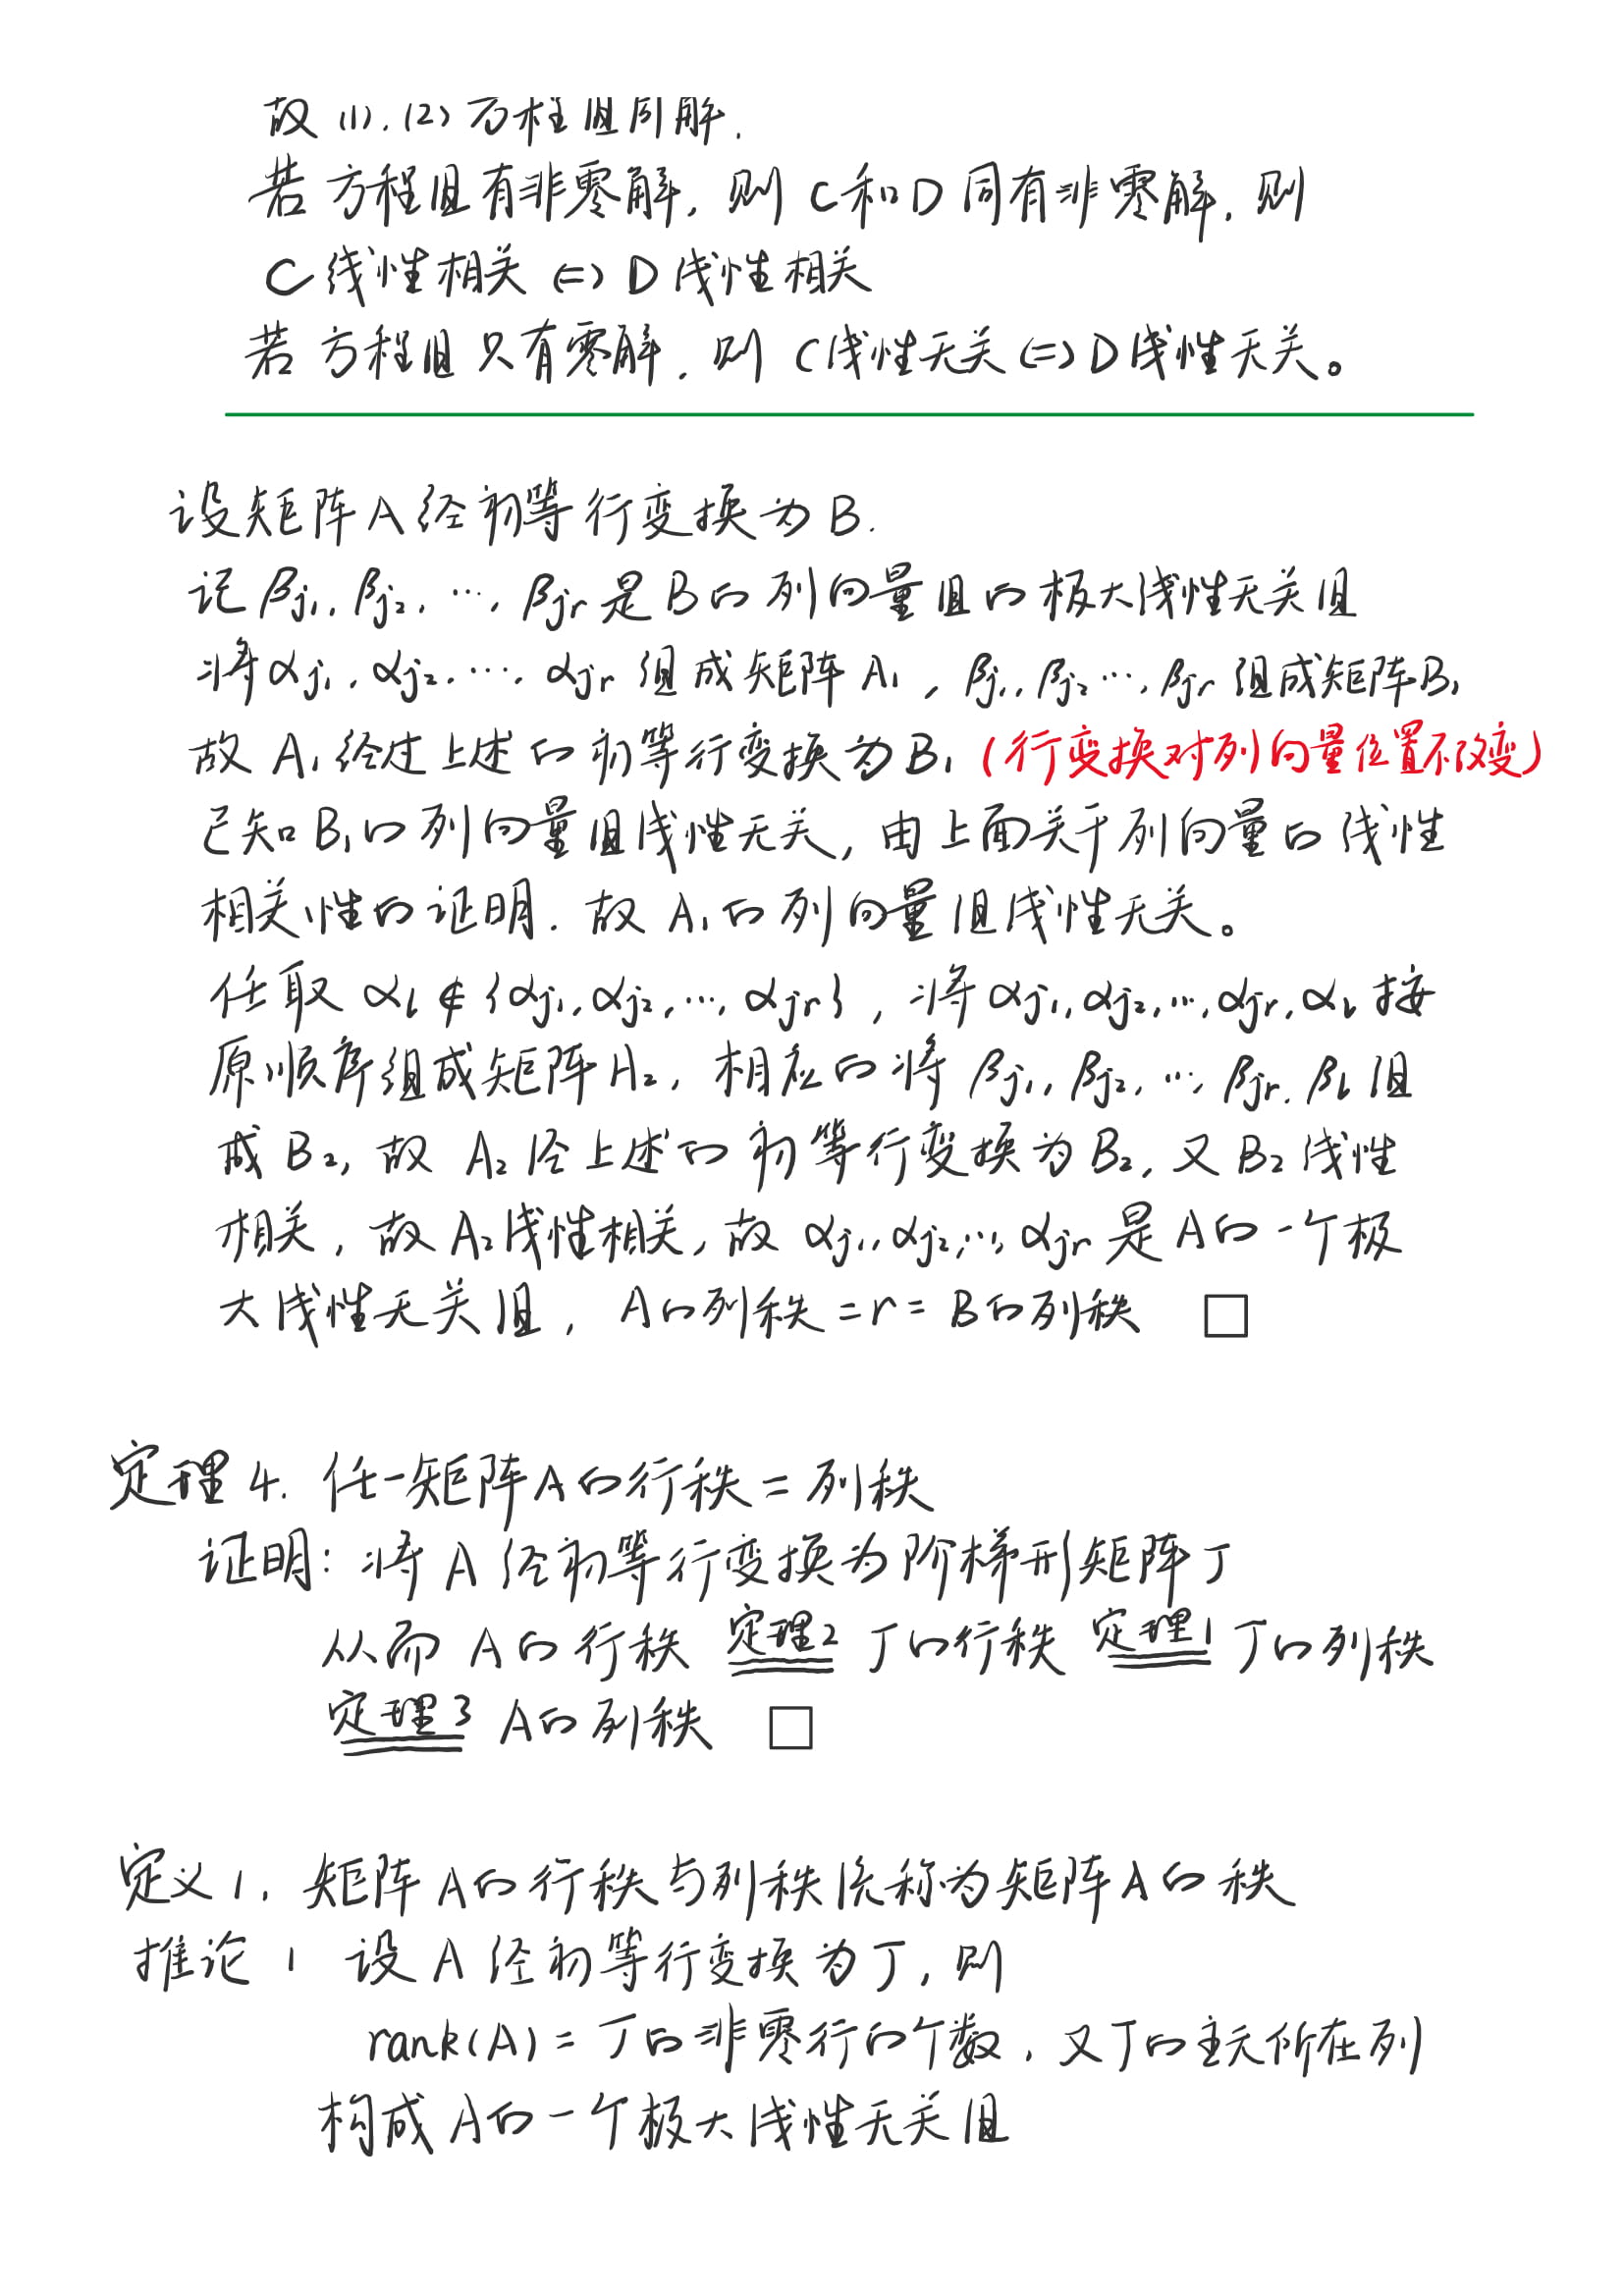 故(1).(2)方程组同解.
若方程组有非零解,则C和D同有非零解,则
C线性相关⇔D线性相关
若方程组只有零解,则C线性无关⇔D线性无关。
设矩阵A经初等行变换为B.
记βj₁,βj₂,…,βjr是B的列向量组的极大线性无关组
将αj₁,αj₂,…,αjr组成矩阵A₁,βj₁,βj₂…,βjr组成矩阵B₁
故A₁经过上述的初等行变换为B₁(行变换对列向量位置不改变)
已知B₁的列向量组线性无关,由上面关于列向量的线性
相关性的证明.故A₁的列向量组线性无关。
任取αl∉{αj₁,αj₂,…,αjr},将αj₁,αj₂,…,αjr,αl按
原顺序组成矩阵A₂,相应的将βj₁,βj₂,…,βjr.βl组
成B₂,故A₂经上述的初等行变换为B₂,又B₂线性
相关,故A₂线性相关,故αj₁,αj₂,…,αjr是A的一个极
大线性无关组,A的列秩=r=B的列秩 □
定理4.任一矩阵A的行秩=列秩
证明:将A经初等行变换为阶梯形矩阵J
从而A的行秩 定理2 J的行秩 定理1 J的列秩
定理3 A的列秩 □
定义1.矩阵A的行秩与列秩统称为矩阵A的秩
推论1 设A经初等行变换为J,则
rank(A)=J的非零行的个数,又J的主元所在列
构成A的一个极大线性无关组